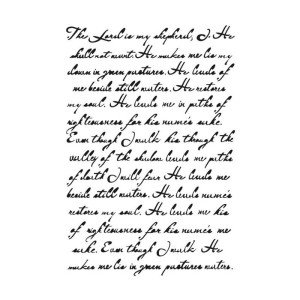 The Lord is my shepherd, I. He
shall not want. He makes me lis my
down in green pastures. He leuds of
me beside still waters. He restores
my soul. He leuds me in puths of
righteousness for his nume's suke.
Even though I walk his through the
valley of the shadow leuds me puths
of I will fear. He leuds me
beside still waters. He leuds nume's
restores my soul. He leuds me his
of righteousness for his nume's me
suke. Even though I walk He
makes me lis in green pustures waters.